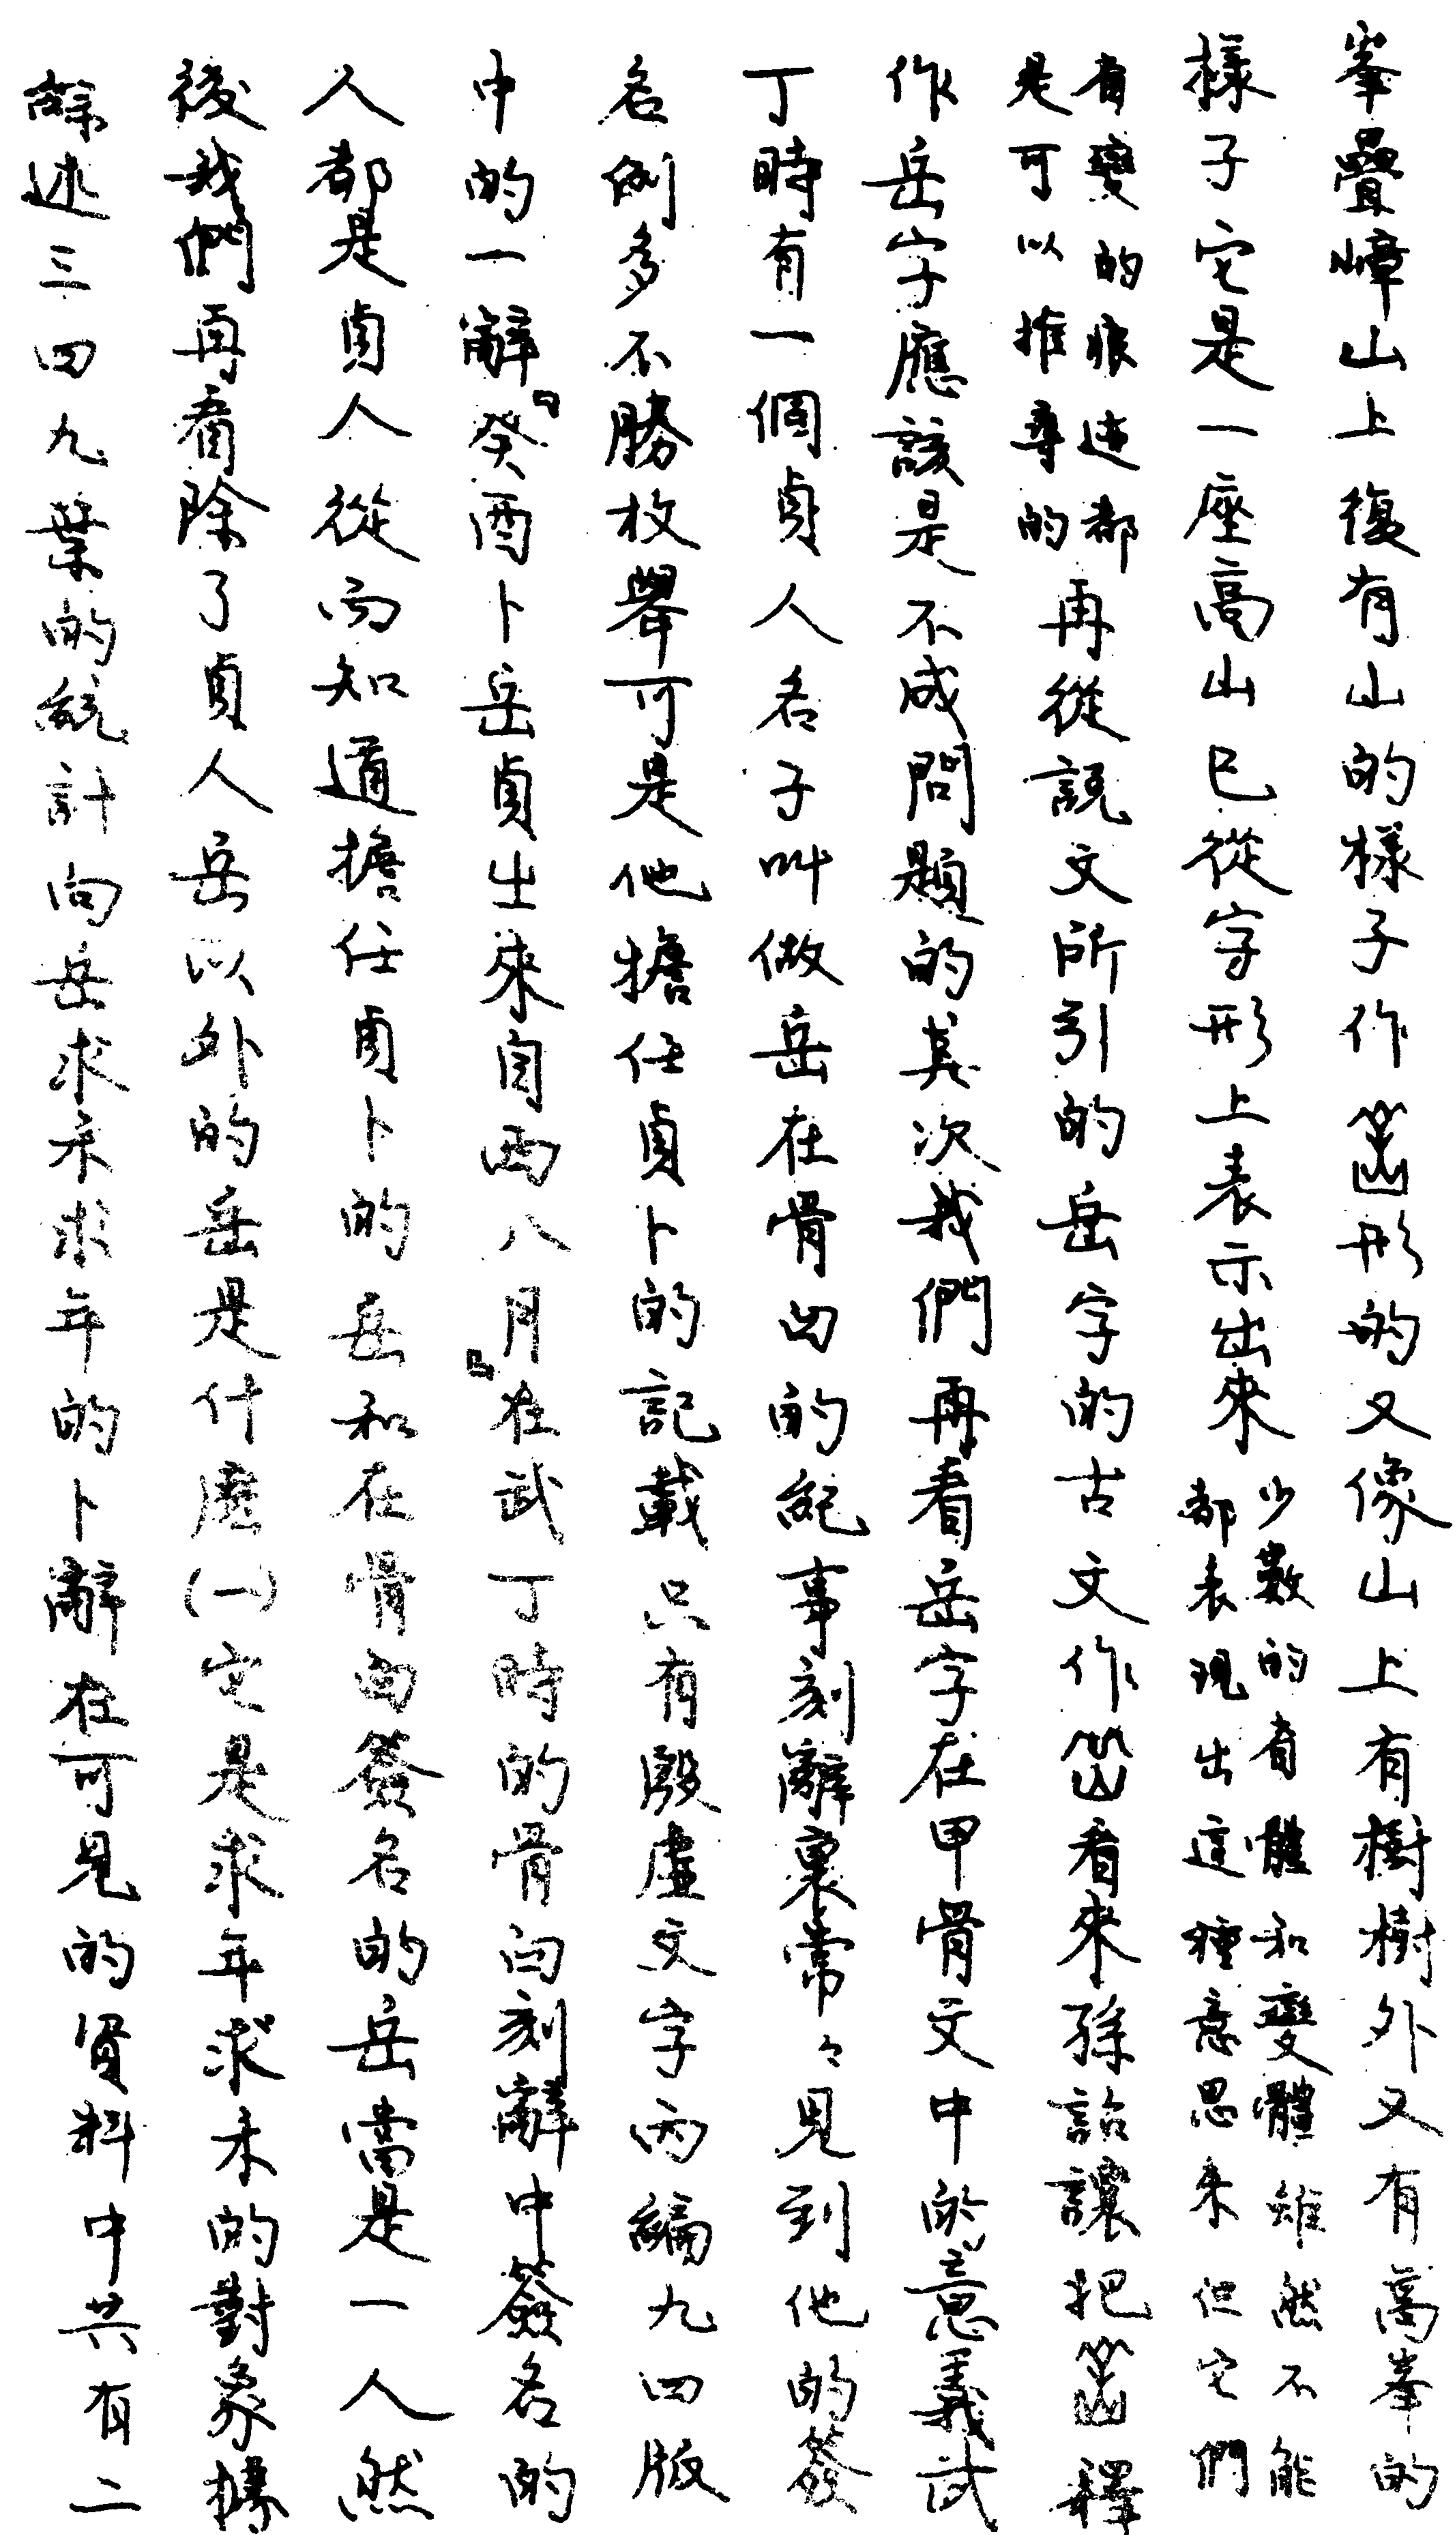 峯疊嶂山上復有山的樣子作形的又像山上有樹樹外又有高峯的
樣子它是一座高山已從字形上表示出來
少數的省體和變體雖然不能
都表現出這種意思來但它們
省變的痕迹都
是可以推尋的
再從說文所引的岳字的古文作看來孫詒讓把釋
作岳字應該是不成問題的其次我們再看岳字在甲骨文中的意義武
丁時有一個貞人名子叫做岳在骨臼的紀事刻辭裏常々見到他的簽
名例多不勝枚舉可是他擔任貞卜的記載只有殷虛文字丙編九四版
中的一辭『癸酉卜岳貞生來自西八月』在武丁時的骨臼刻辭中簽名的
人都是貞人從而知道擔任貞卜的岳和在骨臼簽名的岳當是一人然
後我們再看除了貞人岳以外的岳是什麼(一)它是求年求禾的對象據
綜述三四九葉的統計向岳求禾求年的卜辭在可見的資料中共有二